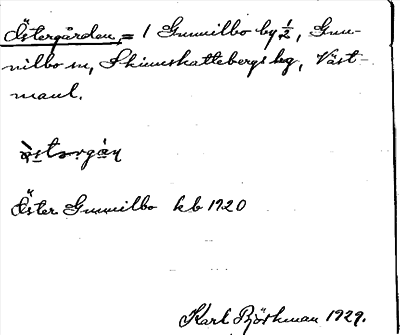 Östergården, = 1 Gunnilbo by ½, Gun-
nilbo sn, Skinnskattebergs hg, Väst-
manl.
Öster Gunnilbo kb 1920
Karl Björkman 1929.